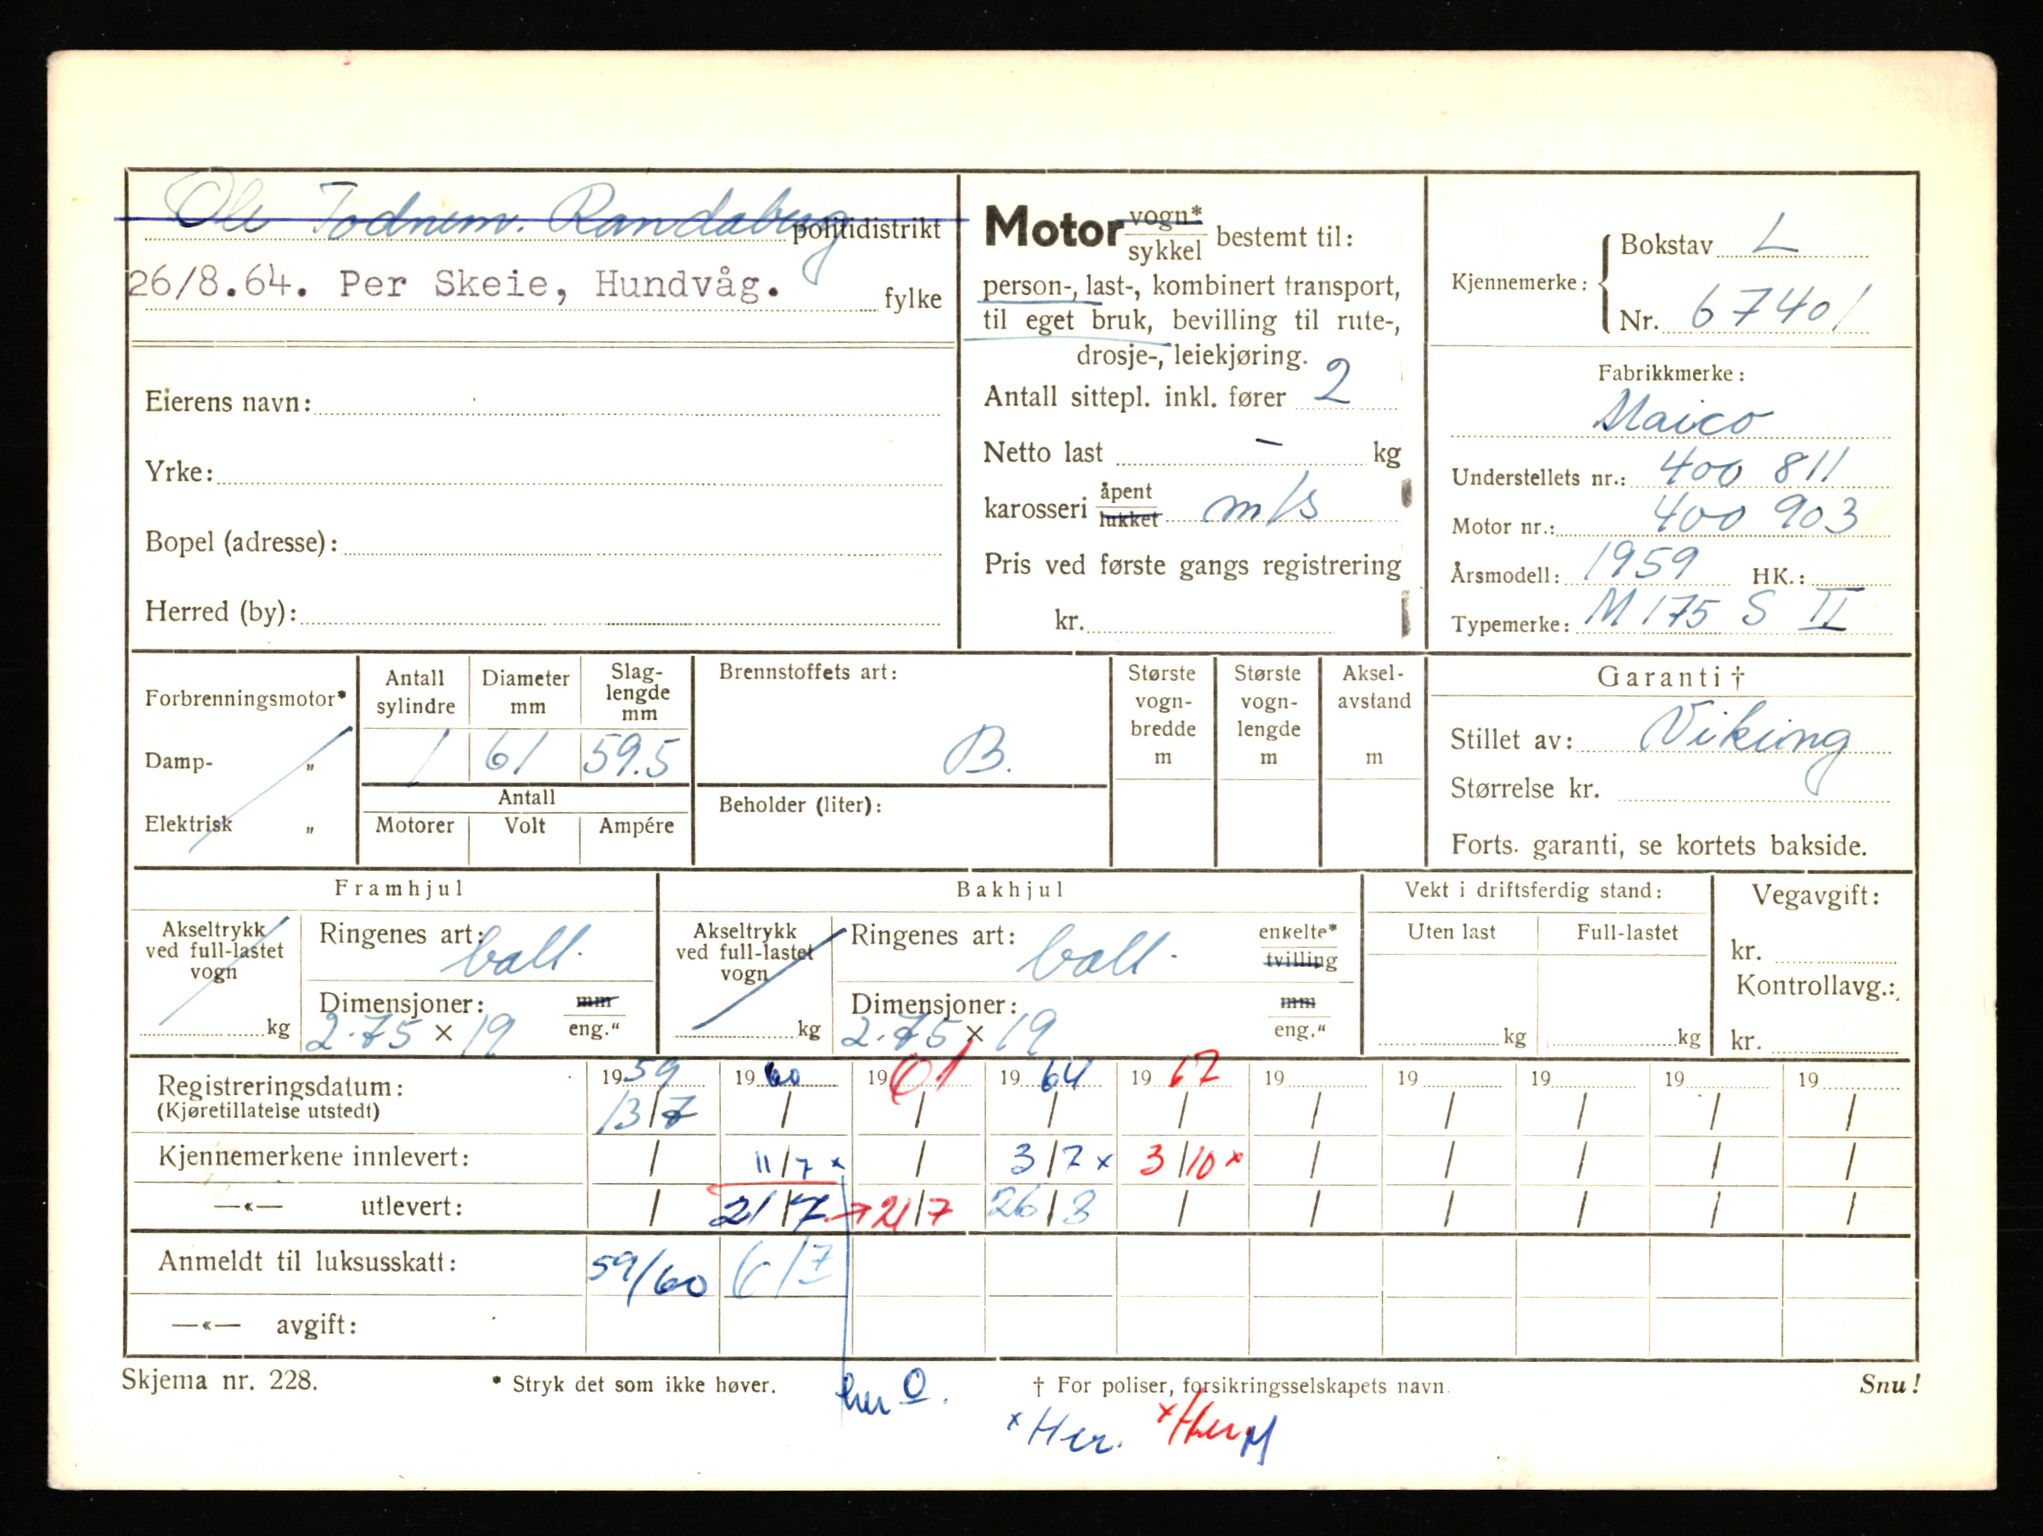 Ole Todnem. Randaberg politidistrikt
26/8.64. Per Skeie, Hundvåg. fylke
Eierens navn:
Yrke:
Bopel (adresse):
Herred (by):
Motor vogn* sykkel bestemt til:
person-, last-, kombinert transport,
til eget bruk, bevilling til rute-,
drosje-, leiekjøring.
Antall sittepl. inkl. fører 2
Netto last – kg
karosseri åpent lukket m/s
Pris ved første gangs registrering
kr.
Kjennemerke: Bokstav L
Nr. 67401
Fabrikkmerke:
Maico
Understellets nr.: 400 811
Motor nr.: 400 903
Årsmodell: 1959 HK.:
Typemerke: M 175 S II
Forbrenningsmotor*
Damp- „
Elektrisk „
Antall sylindre Diameter mm Slag-lengde mm
1 61 59.5
Antall
Motorer Volt Ampére
Brennstoffets art:
B.
Beholder (liter):
Største vogn-bredde m
Største vogn-lengde m
Aksel-avstand m
Garanti †
Stillet av: Viking
Størrelse kr.
Forts. garanti, se kortets bakside.
Framhjul
Akseltrykk ved full-lastet vogn kg
Ringenes art: ball.
Dimensjoner: mm
2.75 × 19 eng."
Bakhjul
Akseltrykk ved full-lastet vogn kg
Ringenes art: ball. enkelte* tvilling
Dimensjoner: mm
2.75 × 19 eng."
Vekt i driftsferdig stand:
Uten last Full-lastet
kg kg
Vegavgift:
kr.
Kontrollavg.:
kr.
Registreringsdatum: 1959 1960 1961 1964 1967 19 19 19 19 19
(Kjøretillatelse utstedt) 13/7 / / / / / / / / /
Kjennemerkene innlevert: / 11/7 x / 3/7 x 3/10 x / / / / /
—«— utlevert: / 21/7 → 21/7 26/8 / / / / / /
Anmeldt til luksusskatt: 59/60 6/7
—«— avgift:
Skjema nr. 228. * Stryk det som ikke høver. her O. † For poliser, forsikringsselskapets navn. Snu!
x Her. x Her. M